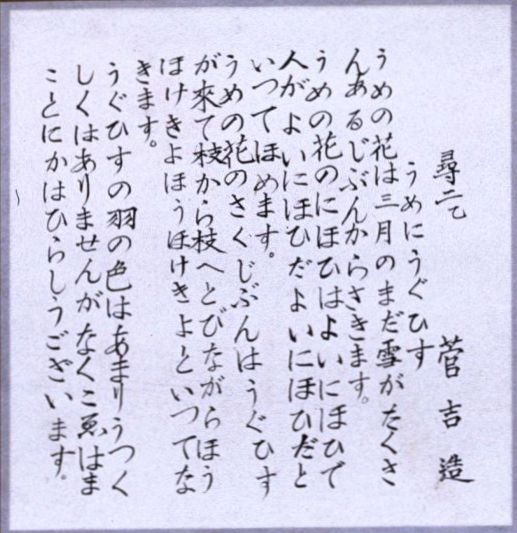 尋二乙 菅吉造
うめにうぐひす
うめの花は三月のまだ雪がたくさ
んあるじぶんからさきます。
うめの花のにほひはよいにほひで
人がよいにほひだよいにほひだと
いつてほめます。
うめの花のさくじぶんはうぐひす
が來て枝から枝へとびながらほう
ほけきよほうほけきよといつてな
きます。
うぐひすの羽の色はあまりうつく
しくはありませんがなくこゑはま
ことにかはひらしうございます。